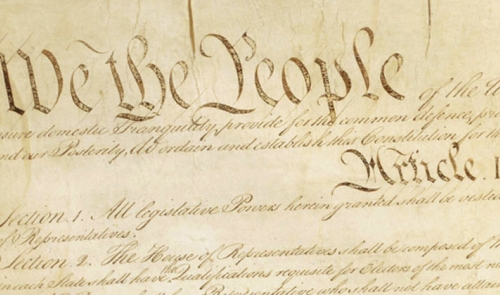 We the People of the U
sure domestic Tranquility, provide for the common defence, pro
nd our Posterity, do ordain and establish this Constitution for th
Article. I
Section 1. All legislative Powers herein granted shall be vested
of Representatives.
Section 2. The House of Representatives shall be composed of M
in each State shall have the Qualifications requisite for Electors of the most nu
Representative who shall not have attain